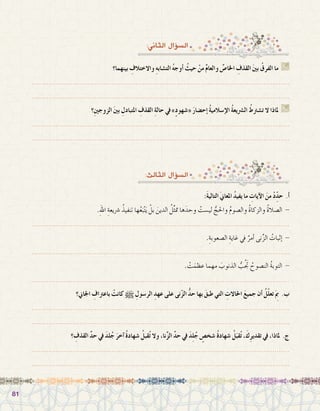 السؤال الثاني
ما الفرقُ بينَ القذفِ الخاصِّ والعامِّ مِنْ حيثُ أوجهُ التشابهِ والاختلافِ بينهما؟
لماذا لا تشترطُ الشريعةُ الإسلاميةُ إحضارَ «شهودٍ» في حالةِ القذفِ المتبادلِ بينَ الزوجينِ؟
السؤال الثالث
أ. حدِّدْ مِنَ الآياتِ ما يفيدُ المعانيَ التاليةَ:
– الصلاةُ والزكاةُ والصومُ والحجُّ ليستْ وحدَها تمثِّلُ الدينَ بلْ يَتْبَعُها تنفيذُ شريعةِ اللهِ.
– إثباتُ الزنى أمرٌ في غايةِ الصعوبةِ.
– التوبةُ النصوحُ تَجُبُّ الذنوبَ مهما عظمُتْ.
ب. بمَ تعلِّلُ أن جميعَ الحالاتِ التي طبق بها حدُّ الزنى على عهدِ الرسولِ ﷺ كانتْ باعترافِ الجاني؟
ج. لماذا، في تقديرِك، تُقبَلُ شهادةُ شخصٍ جُلِدَ في حدِّ الزنا، ولا تُقبَلُ شهادةُ آخرَ جُلِدَ في حدِّ القذف؟
81